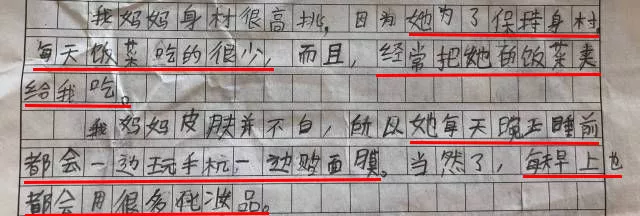 我妈妈身材很高挑,因为她为了保持身材,
每天饭菜吃的很少,而且,经常把她的饭菜夹
给我吃。
我妈妈皮肤并不白,所以她每天晚上睡前
都会一边玩手机,一边贴面膜。当然了,每早上也
都会用很多化妆品。